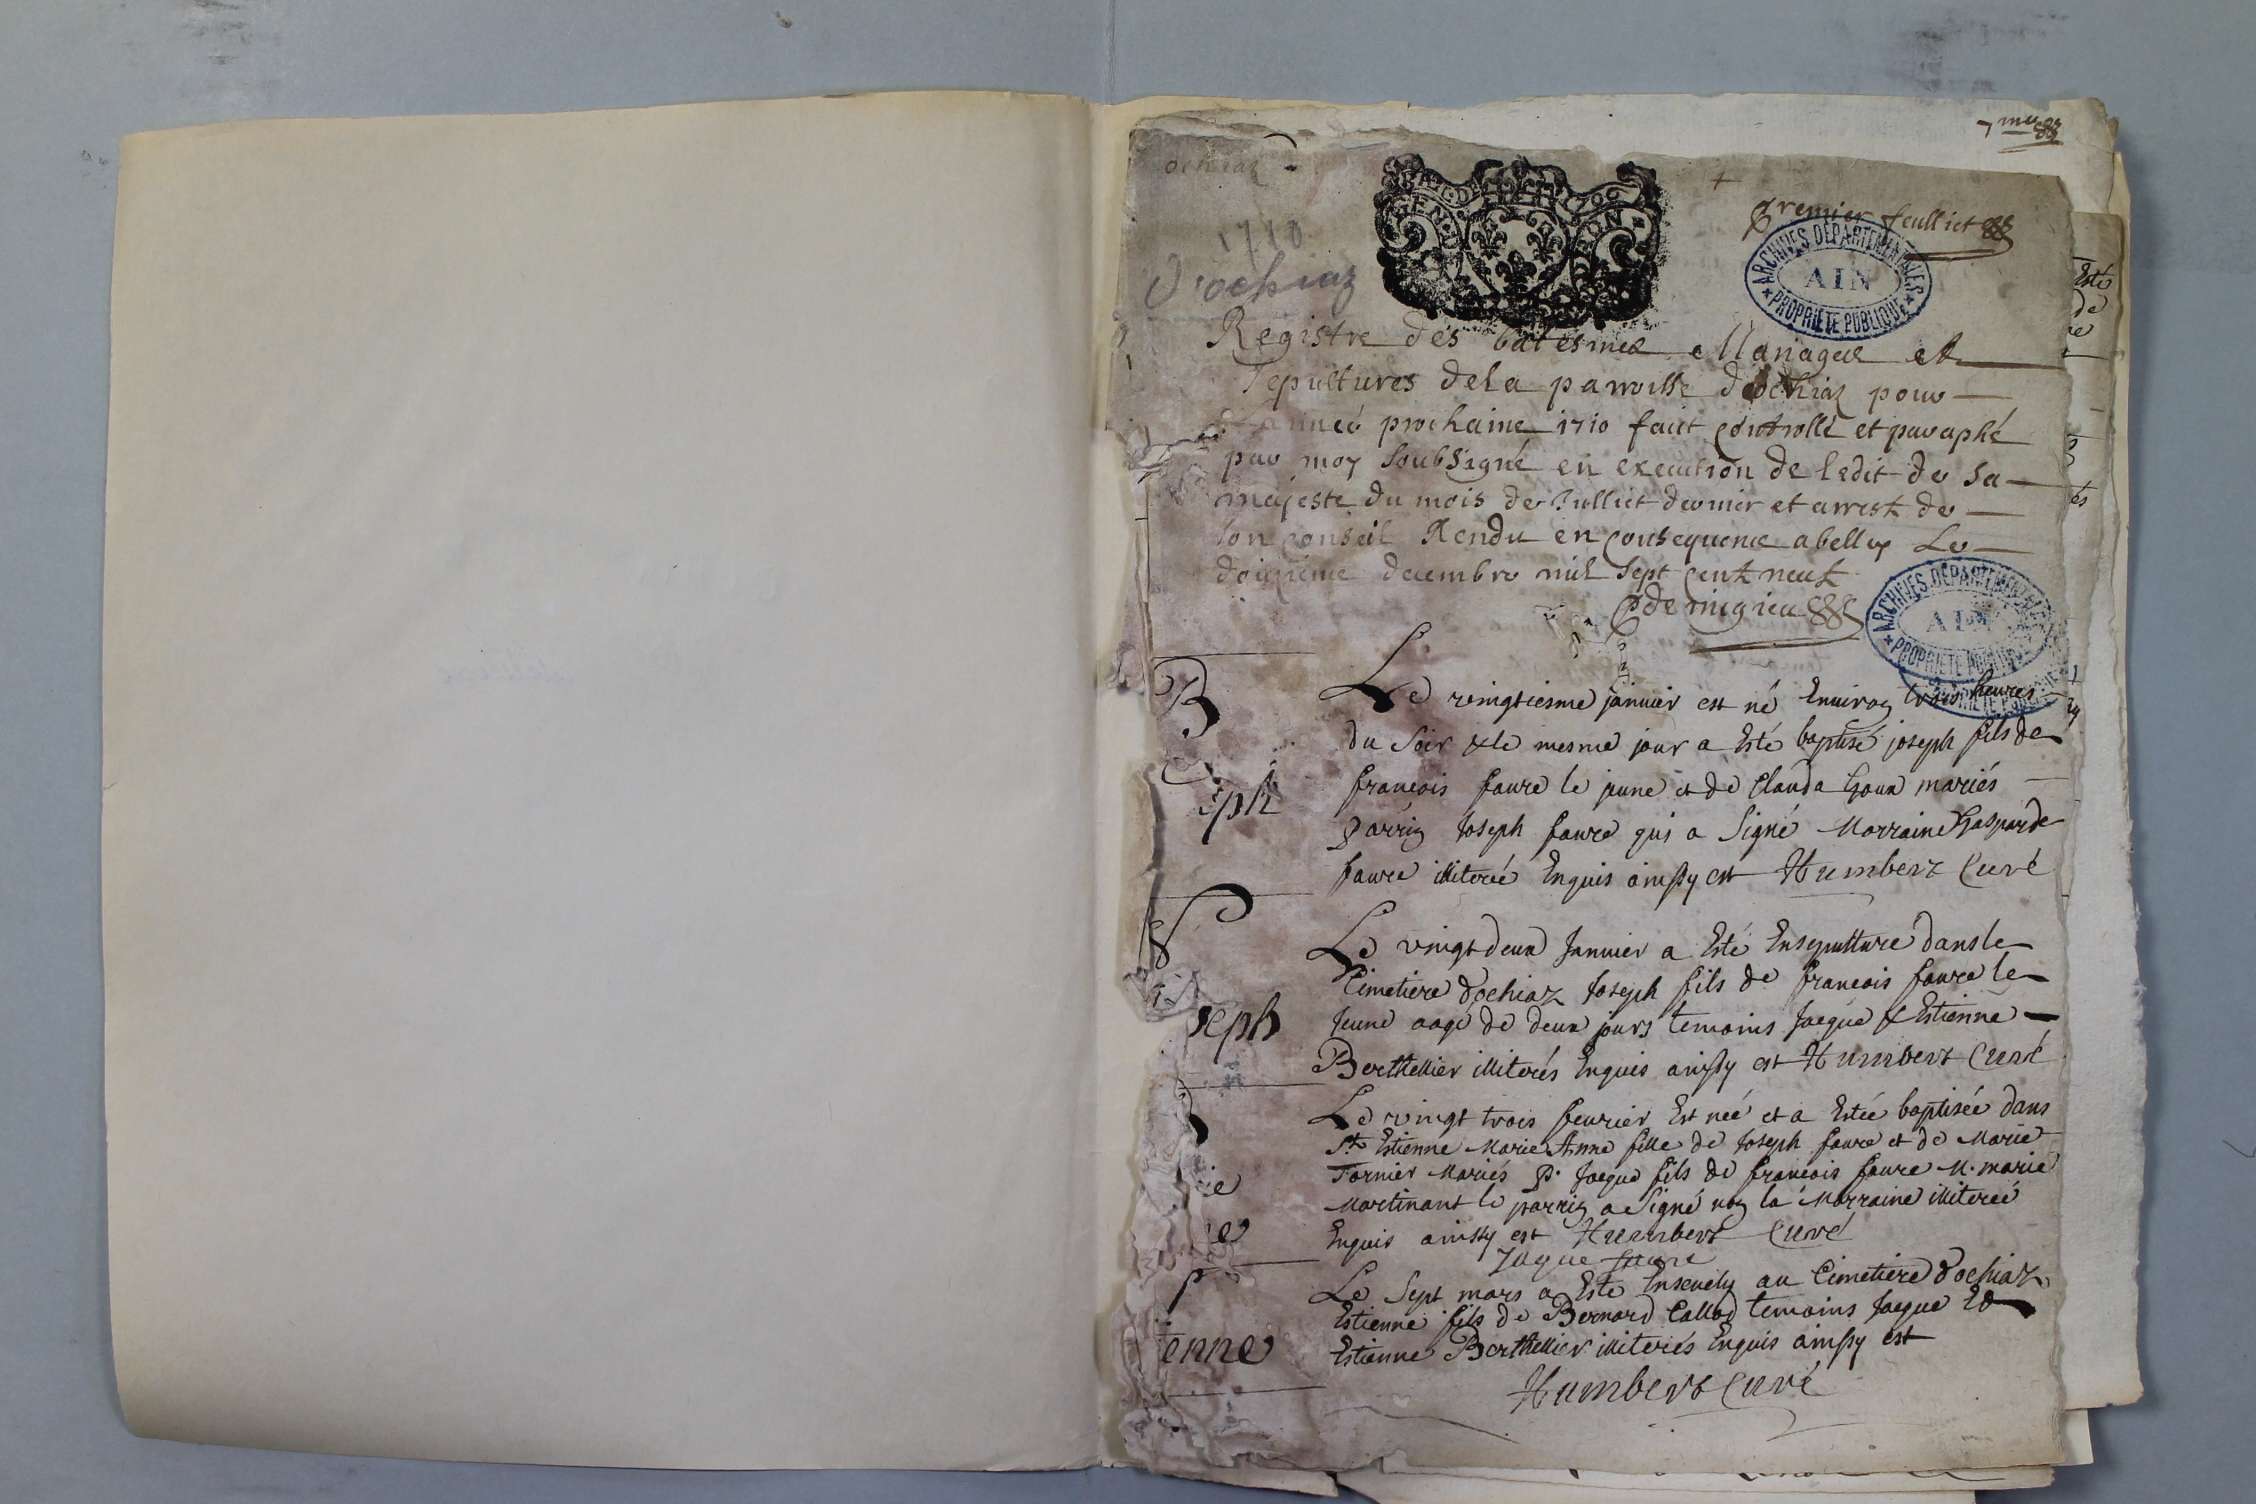 7me
ochiaz
GEN DE BOUR 1706
premier feulliet
ARCHIVES DEPARTEMENTALES
AIN
PROPRIETE PUBLIQUE
1710
d'ochiaz
Registre des batesmes Mariages et
sepultures dela parroisse dochiaz pour
lanneé prochaine 1710 fait controllé et paraphé
par moy soubsigné en execution de ledit de sa
majesté du mois de Julliet dernier et arrest de
son conseil Rendu en consequence a belley Le
doizieme decembre mil sept cent neuf
ARCHIVES DEPARTEMENTALES
AIN
PROPRIETE PUBLIQUE
B
Le vingtiesme janvier est né Environ trois heures
du soir & le mesme jour a Esté baptisé joseph fils de
eph
francois faure le jeune et de Clauda Goux mariés
parrin Joseph faure qui a signé Marraine Gasparde
faure illiterée Enquis ainssy est Humbert Curé
S
Le vingt deux Janvier a Esté Ensepulture dans le
Cimetiere dochiaz Joseph fils de francois faure le
seph
Jeune aagé de deux jours temoins Jaque & Estienne
Berthellier illiterés Enquis ainssy est Humbert Curé
Le vingt trois feuvrier Est neé et a Estée baptisée dans
St Estienne Marie Anne fille de Joseph faure et de Marie
ie
Tornier Mariés P. Jaque fils de francois faure M. marie
Martinant le parrin a signé non la Marraine illitereé
e
Enquis ainssy est Humbert Curé
Jaque faure
S
Le Sept mars a Esté Ensevely au Cimetiere d'ochiaz
Estienne fils de Bernard Callod temoins Jaque Et
ienne
Estienne Berthellier illiterés Enquis ainssy est
Humbert Curé